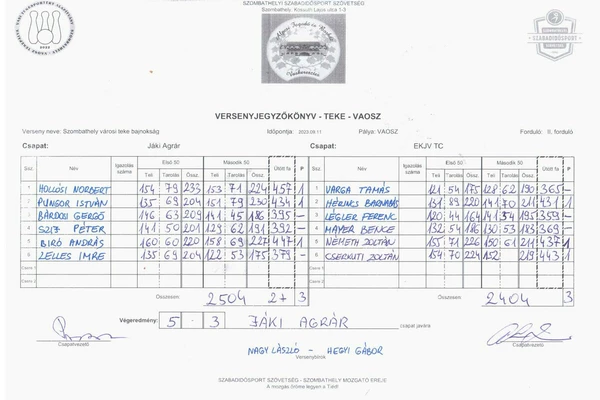 SZOMBATHELYI SZABADIDŐSPORT SZÖVETSÉG
Szombathely, Kossuth Lajos utca 1-3
SZABADIDŐSPORT
VERSENYJEGYZŐKÖNYV - TEKE - VAOSZ
Verseny neve: Szombathely városi teke bajnokság Időpontja: 2023.09.11 Pálya: VAOSZ Forduló: II. forduló
Csapat: Jáki Agrár Csapat: EKJV TC
Ssz. Név Igazolás száma Első 50 Második 50 Ütött fa P Ssz. Név Igazolás száma Első 50 Második 50 Ütött fa P
Teli Tarolás Össz. Teli Tarolás Össz. Teli Tarolás Össz. Teli Tarolás Össz.
1 HOLLÓSI NORBERT 154 79 233 153 71 224 457 1 1 VARGA TAMÁS 121 54 175 128 62 190 365 -
2 PUNGOR ISTVÁN 135 69 204 151 79 230 434 1 2 BARNABÁS 131 89 220 140 71 211 431 1
3 BÁRDOSI GERGŐ 146 63 209 141 45 186 395 - 3 LÉGLER FERENC 120 44 164 141 54 195 359 -
4 SZIJ PÉTER 141 50 191 129 62 191 392 - 4 MAYER BENCE 132 54 186 130 53 183 369 -
5 BIRÓ ANDRÁS 160 60 220 158 69 227 447 1 5 NÉMETH ZOLTÁN 155 71 226 150 61 211 437 1
6 ZELLES IMRE 135 69 204 122 53 175 379 - 6 CSERKUTI ZOLTÁN 154 70 224 152 219 443 1
Csere 1 Csere 1
Csere 2 Csere 2
Összesen: 2504 2+ 3 Összesen: 2404 3
Végeredmény: 5 - 3 JÁKI AGRÁR csapat javára
Csapatvezető Csapatvezető
NAGY LÁSZLÓ - HEGYI GÁBOR
Versenybírók
SZABADIDŐSPORT SZÖVETSÉG - SZOMBATHELY MOZGATÓ EREJE
A mozgás öröme legyen a Tiéd!